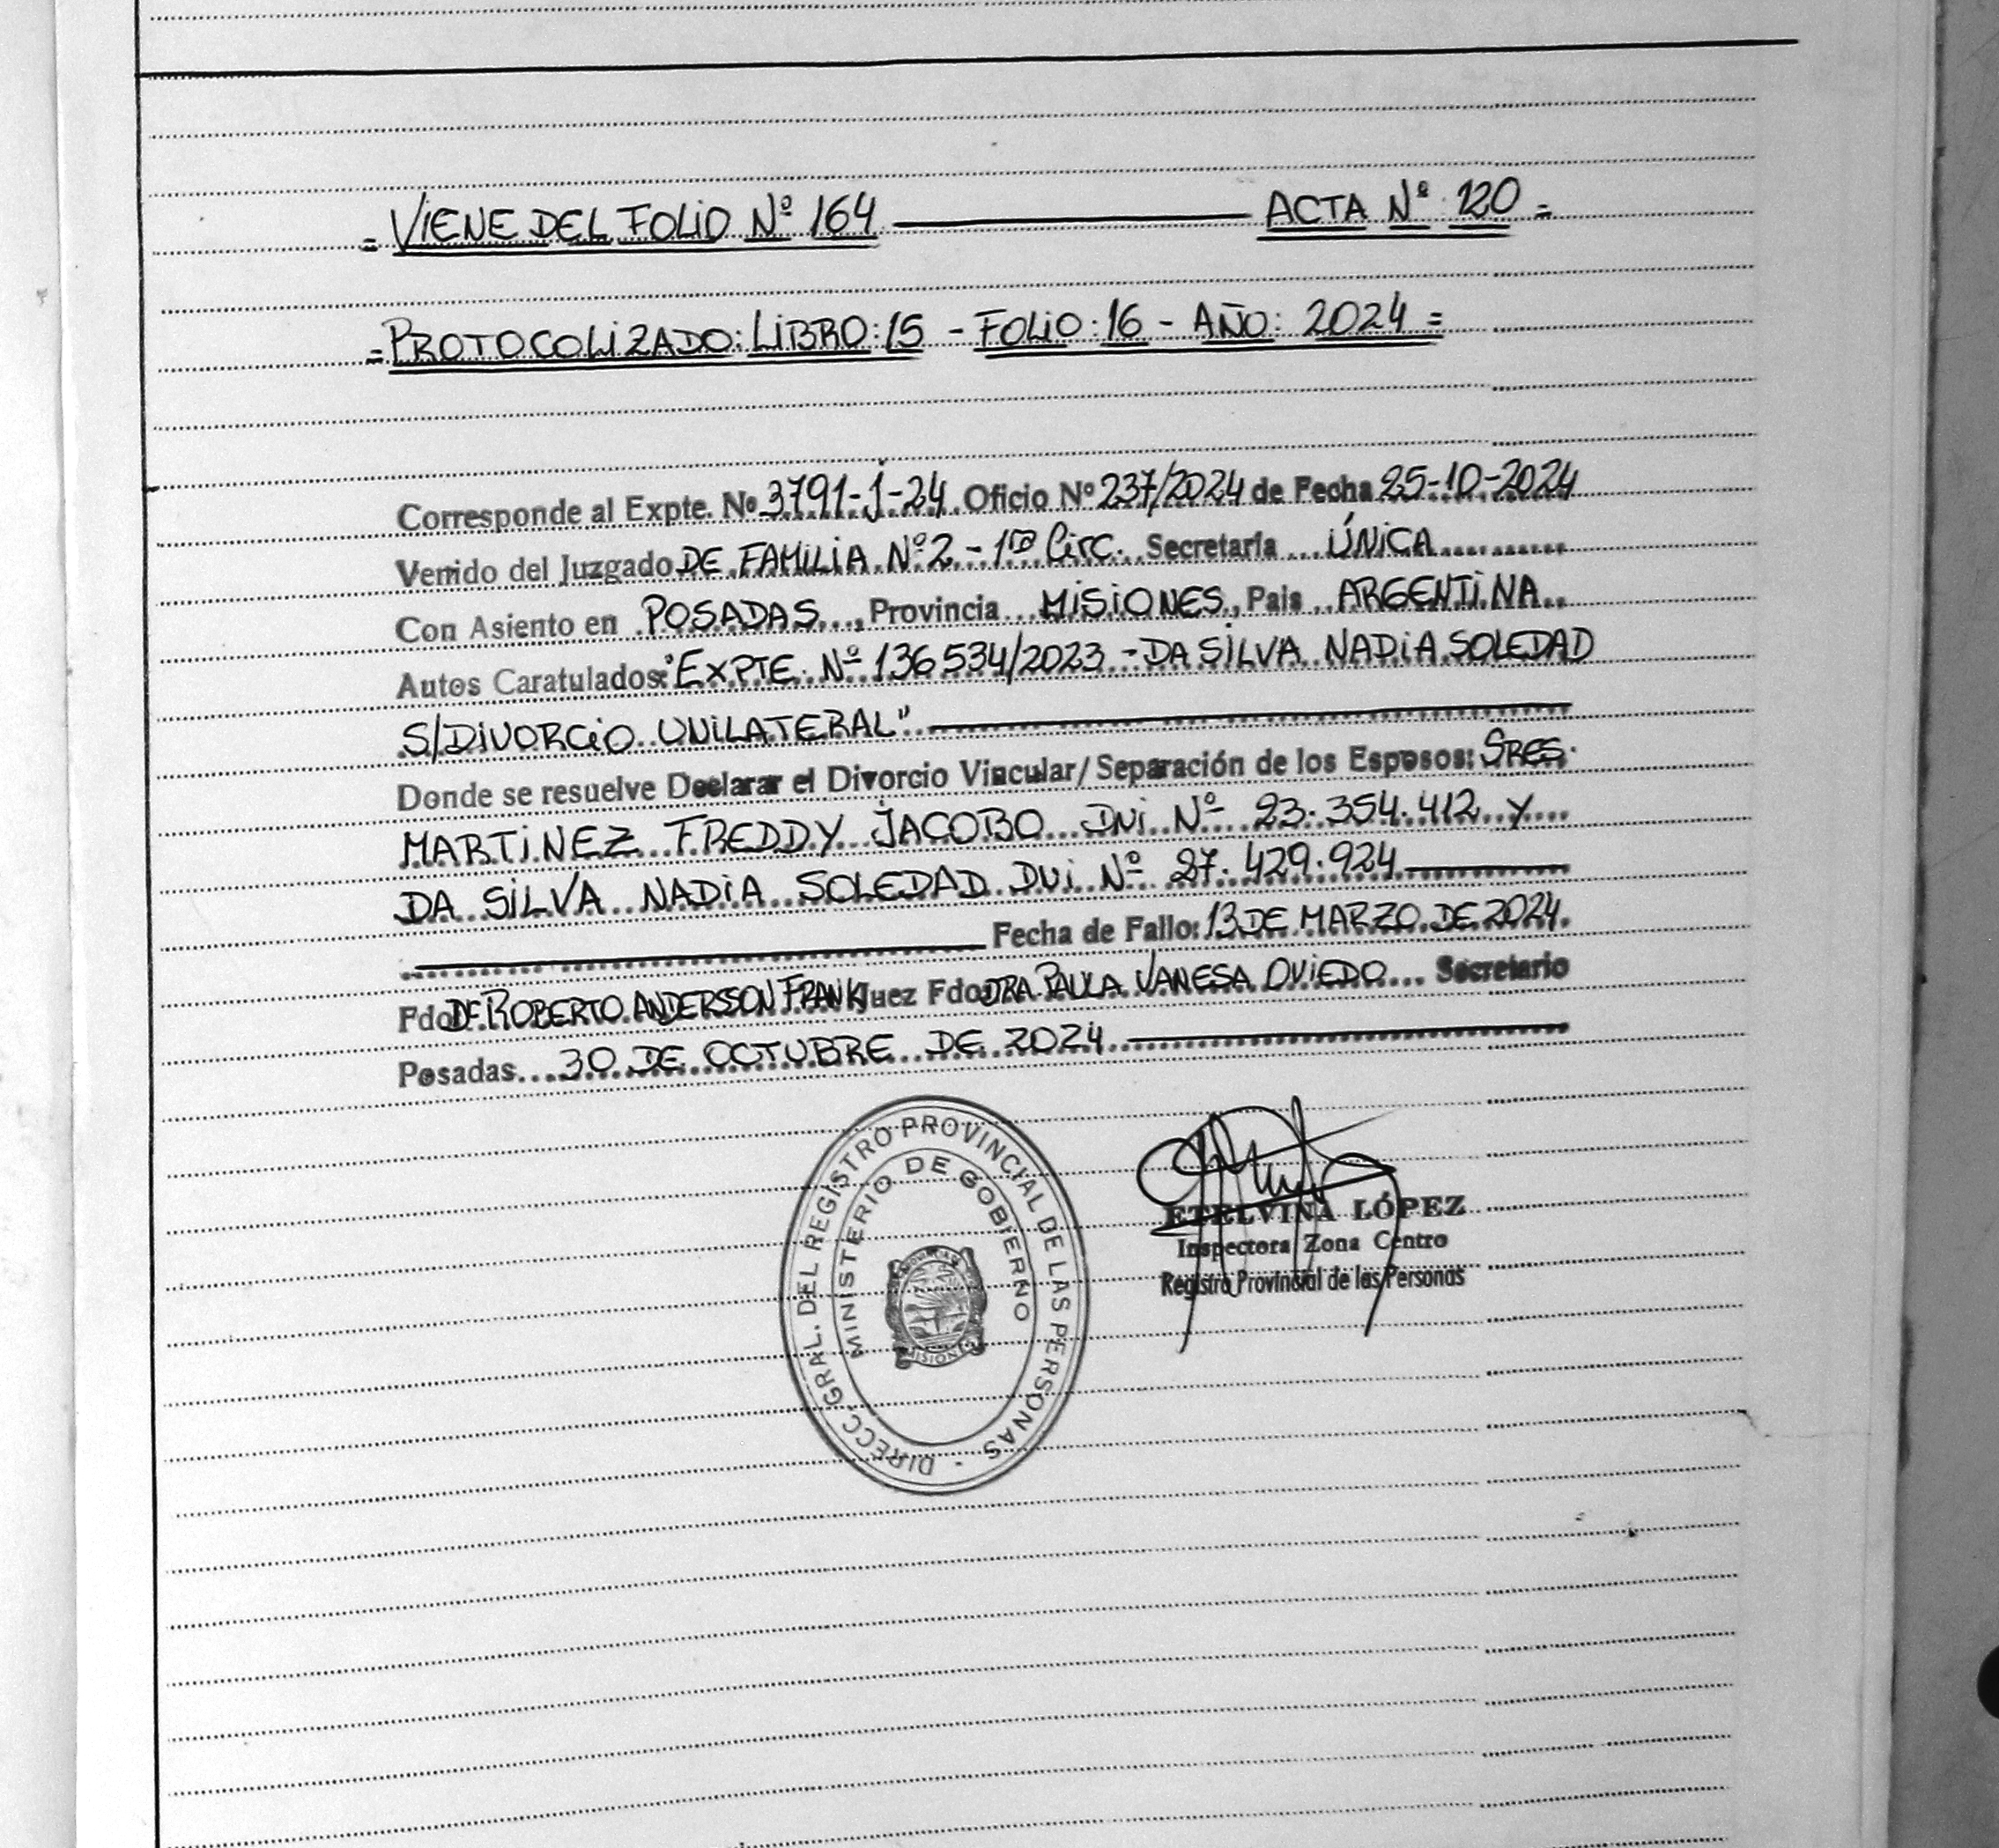 = VIENE DEL FOLIO Nº 164 ACTA Nº 120 =
= PROTOCOLIZADO: LIBRO: 15 - FOLIO: 16 - AÑO: 2024 =
Corresponde al Expte. Nº 3791-J-24 Oficio Nº 237/2024 de Fecha 25-10-2024
Venido del Juzgado DE FAMILIA Nº 2 - 1ra Circ. Secretaría ÚNICA
Con Asiento en POSADAS, Provincia MISIONES, Pais ARGENTINA
Autos Caratulados: "EXPTE Nº 136534/2023 - DA SILVA NADIA SOLEDAD
S/DIVORCIO UNILATERAL"
Donde se resuelve Declarar el Divorcio Vincular/Separación de los Esposos: SRES.
MARTINEZ FREDDY JACOBO DNI Nº 23.354.412 Y
DA SILVA NADIA SOLEDAD DNI Nº 27.429.924
Fecha de Fallo: 13 DE MARZO DE 2024.
Fdo. Dr ROBERTO ANDERSSON FRANK Juez Fdo. DRA PAULA VANESA OVIEDO Secretario
Posadas 30 DE OCTUBRE DE 2024
DIRECC. GRAL. DEL REGISTRO PROVINCIAL DE LAS PERSONAS
MINISTERIO DE GOBIERNO
MISIONES
ETELVINA LÓPEZ
Inspectora Zona Centro
Registro Provincial de las Personas